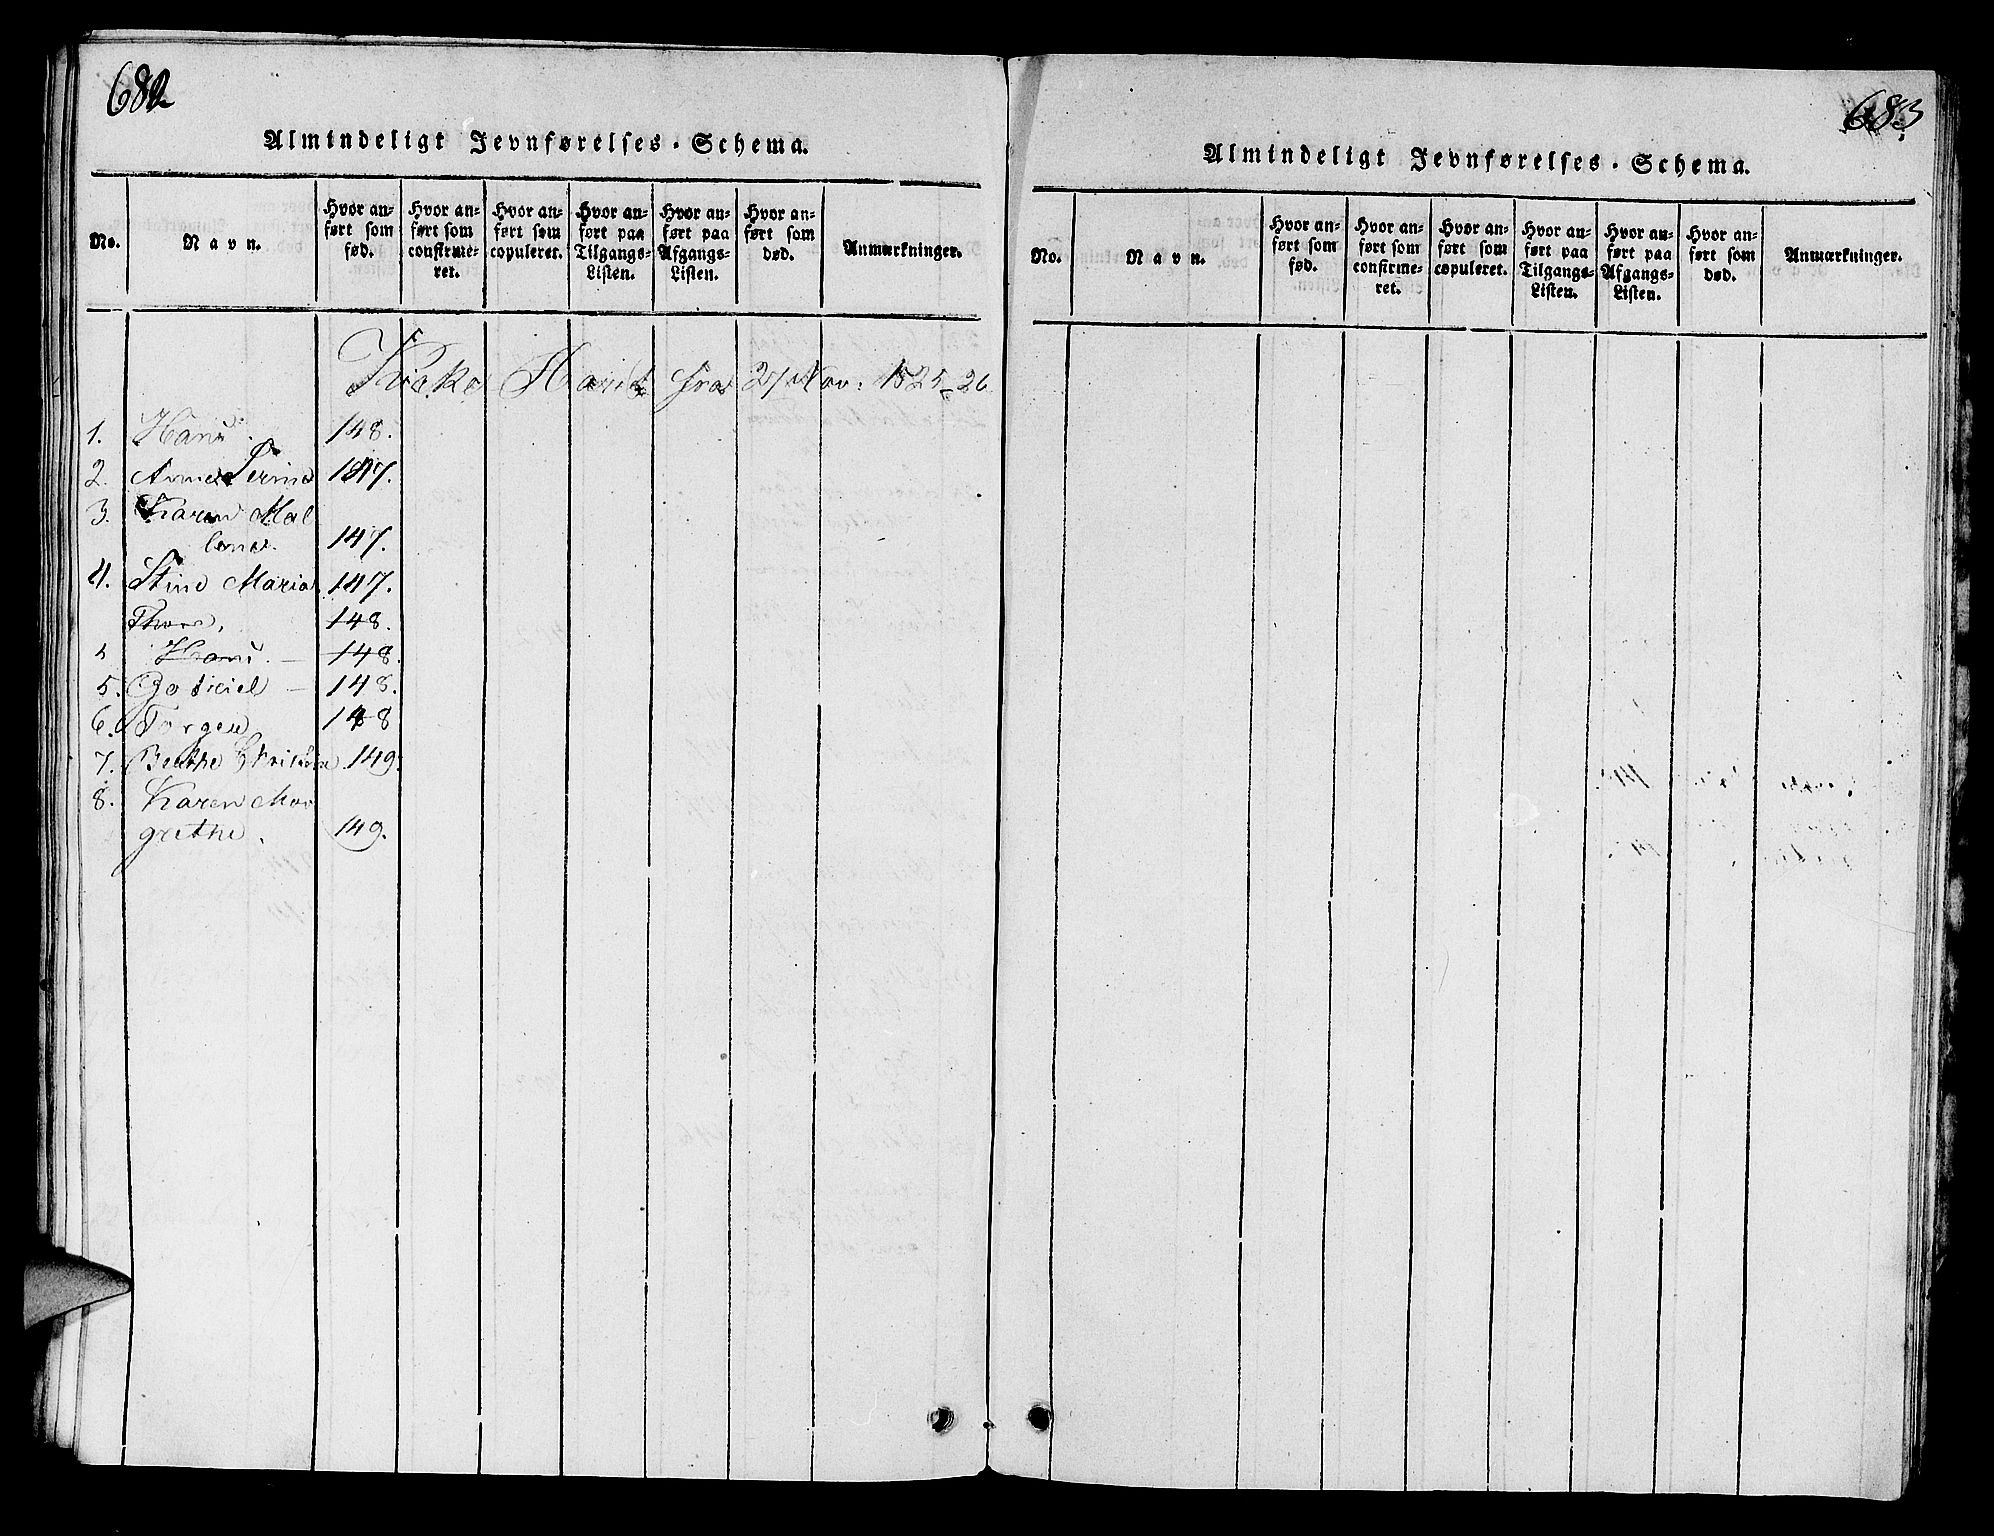 682
Almindeligt Jevnførelses-Schema.
No.
Navn.
Hvor anført som fød.
Hvor anført som confirmeret.
Hvor anført som copuleret.
Hvor anført paa Tilgangs-Listen.
Hvor anført paa Afgangs-Listen.
Hvor anført som død.
Anmærkninger.
Kirke fra 27 Nov: 1825-26
1. Hans. 148.
2. Anne Serine 147.
3. Karen Mal
lene. 147.
4. Stine Maria 147.
148.
Hans. — 148.
5. — 148.
6. Torger 148
7. Berthe Christine 149.
8. Karen Mar
grethe. 149.
683
Almindeligt Jevnførelses-Schema.
No.
Navn.
Hvor anført som fød.
Hvor anført som confirmeret.
Hvor anført som copuleret.
Hvor anført paa Tilgangs-Listen.
Hvor anført paa Afgangs-Listen.
Hvor anført som død.
Anmærkninger.